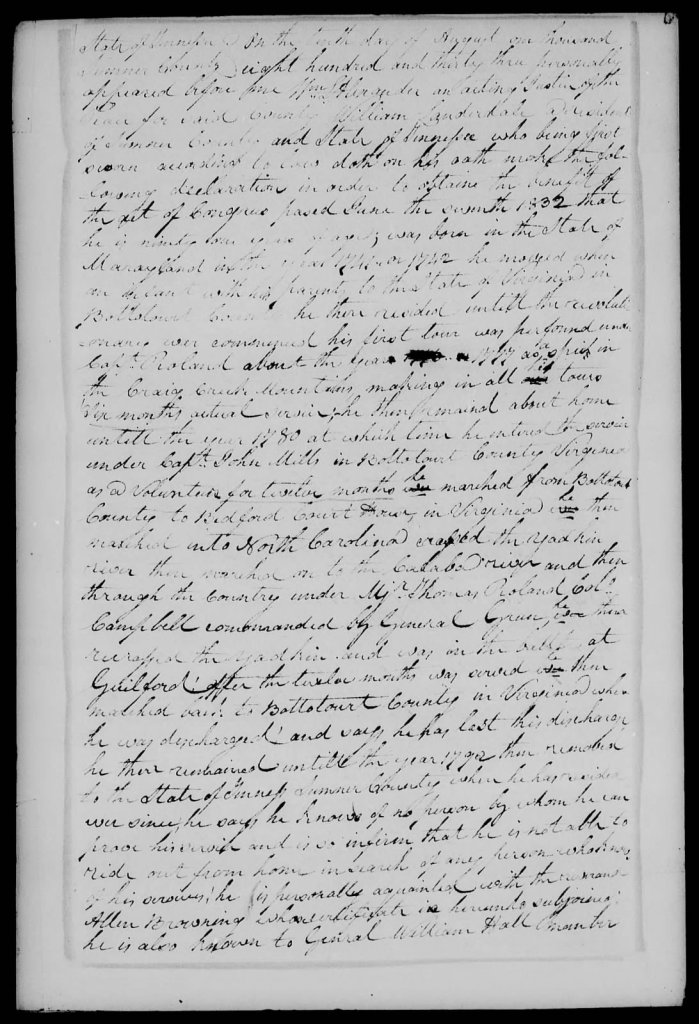 State of Tennessee } On the tenth day of August one thousand
Sumner County } eight hundred and thirty three personally
appeared before me Wm Alexander an acting Justice of the
Peace for said County William Lauderdale Resident
of Sumner County and State of Tennessee who being first
sworn according to Law doth on his oath make the fol-
lowing declaration in order to obtaine the benefit of
the act of Congress passed June the seventh 1832 that
he is ninety one years of age; was born in the State of
Marayland in the year 1741 or 1742 he moved when
an infant with his parents to the State of Virginia in
Bottotourt County he there resided untill the revoluti
onary war commenced his first tour was perfomd under
Capt. Roland about the year 1777 as a spie in
the Craigs Creek Mountins, making in all his tours
Six months actual service; he then remained about home
untill the year 1780 at which time he entered the service
under Capt. John Mills in Bottotourt County Virginia
as a Volunteer for twelve months he marched from Bottotourt
County to Bedford Court House, in Virginia he then
marched into North Carolina crossed the Yadkin
river then marched on to the Cataba river and then
through the Country under Mjr. Thomas Roland, Col.
Campbell commanded by General Green, he then
recrossed the Yadkin and was in the battle at
Guilford after the twelve months was served he then
marched back to Bottotourt County in Virginia where
he was discharged and says he has lost his discharge
he then remained untill the year 1792 then removed
to the State of Tenness Sumner County where he has resided
ever since, he says he knows of no person by whom he can
prove his service and is so infirm that he is not able to
ride out from home in search of any person who knows
of his services; he is personally aquainted with the reverand
Allen Browning whose certificate is hereunto subjoined
he is also known to General William Hall a member